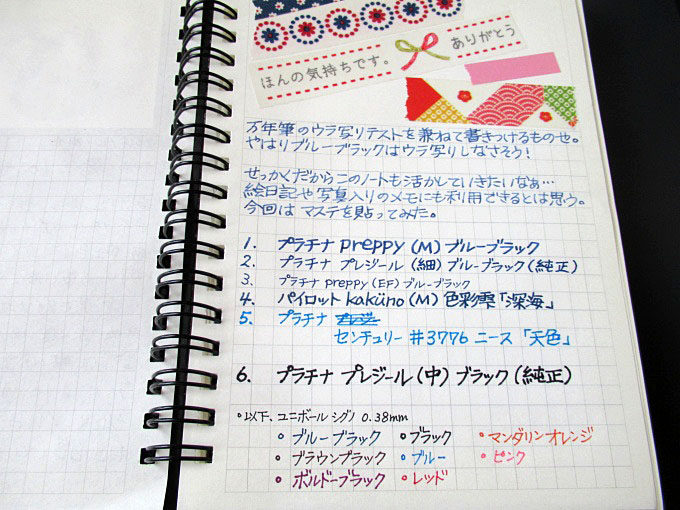 ありがとう
ほんの気持ちです。
万年筆のウラ写りテストを兼ねて書きつけるものせ。
やはりブルーブラックはウラ写りしなさそう!
せっかくだからこのノートも活かしていきたいなぁ…
絵日記や写真入りのメモにも利用できるとは思う。
今回はマステを貼ってみた。
1. プラチナ preppy (M) ブルーブラック
2. プラチナ プレジール (細) ブルーブラック (純正)
3. プラチナ preppy (EF) ブルーブラック
4. パイロット kaküno (M) 色彩雫「深海」
5. プラチナ プレジー
センチュリー #3776 ニース 「天色」
6. プラチナ プレジール (中) ブラック (純正)
・以下、ユニボール シグノ 0.38mm
・ブルーブラック ・ブラック ・マンダリンオレンジ
・ブラウンブラック ・ブルー ・ピンク
・ボルドーブラック ・レッド